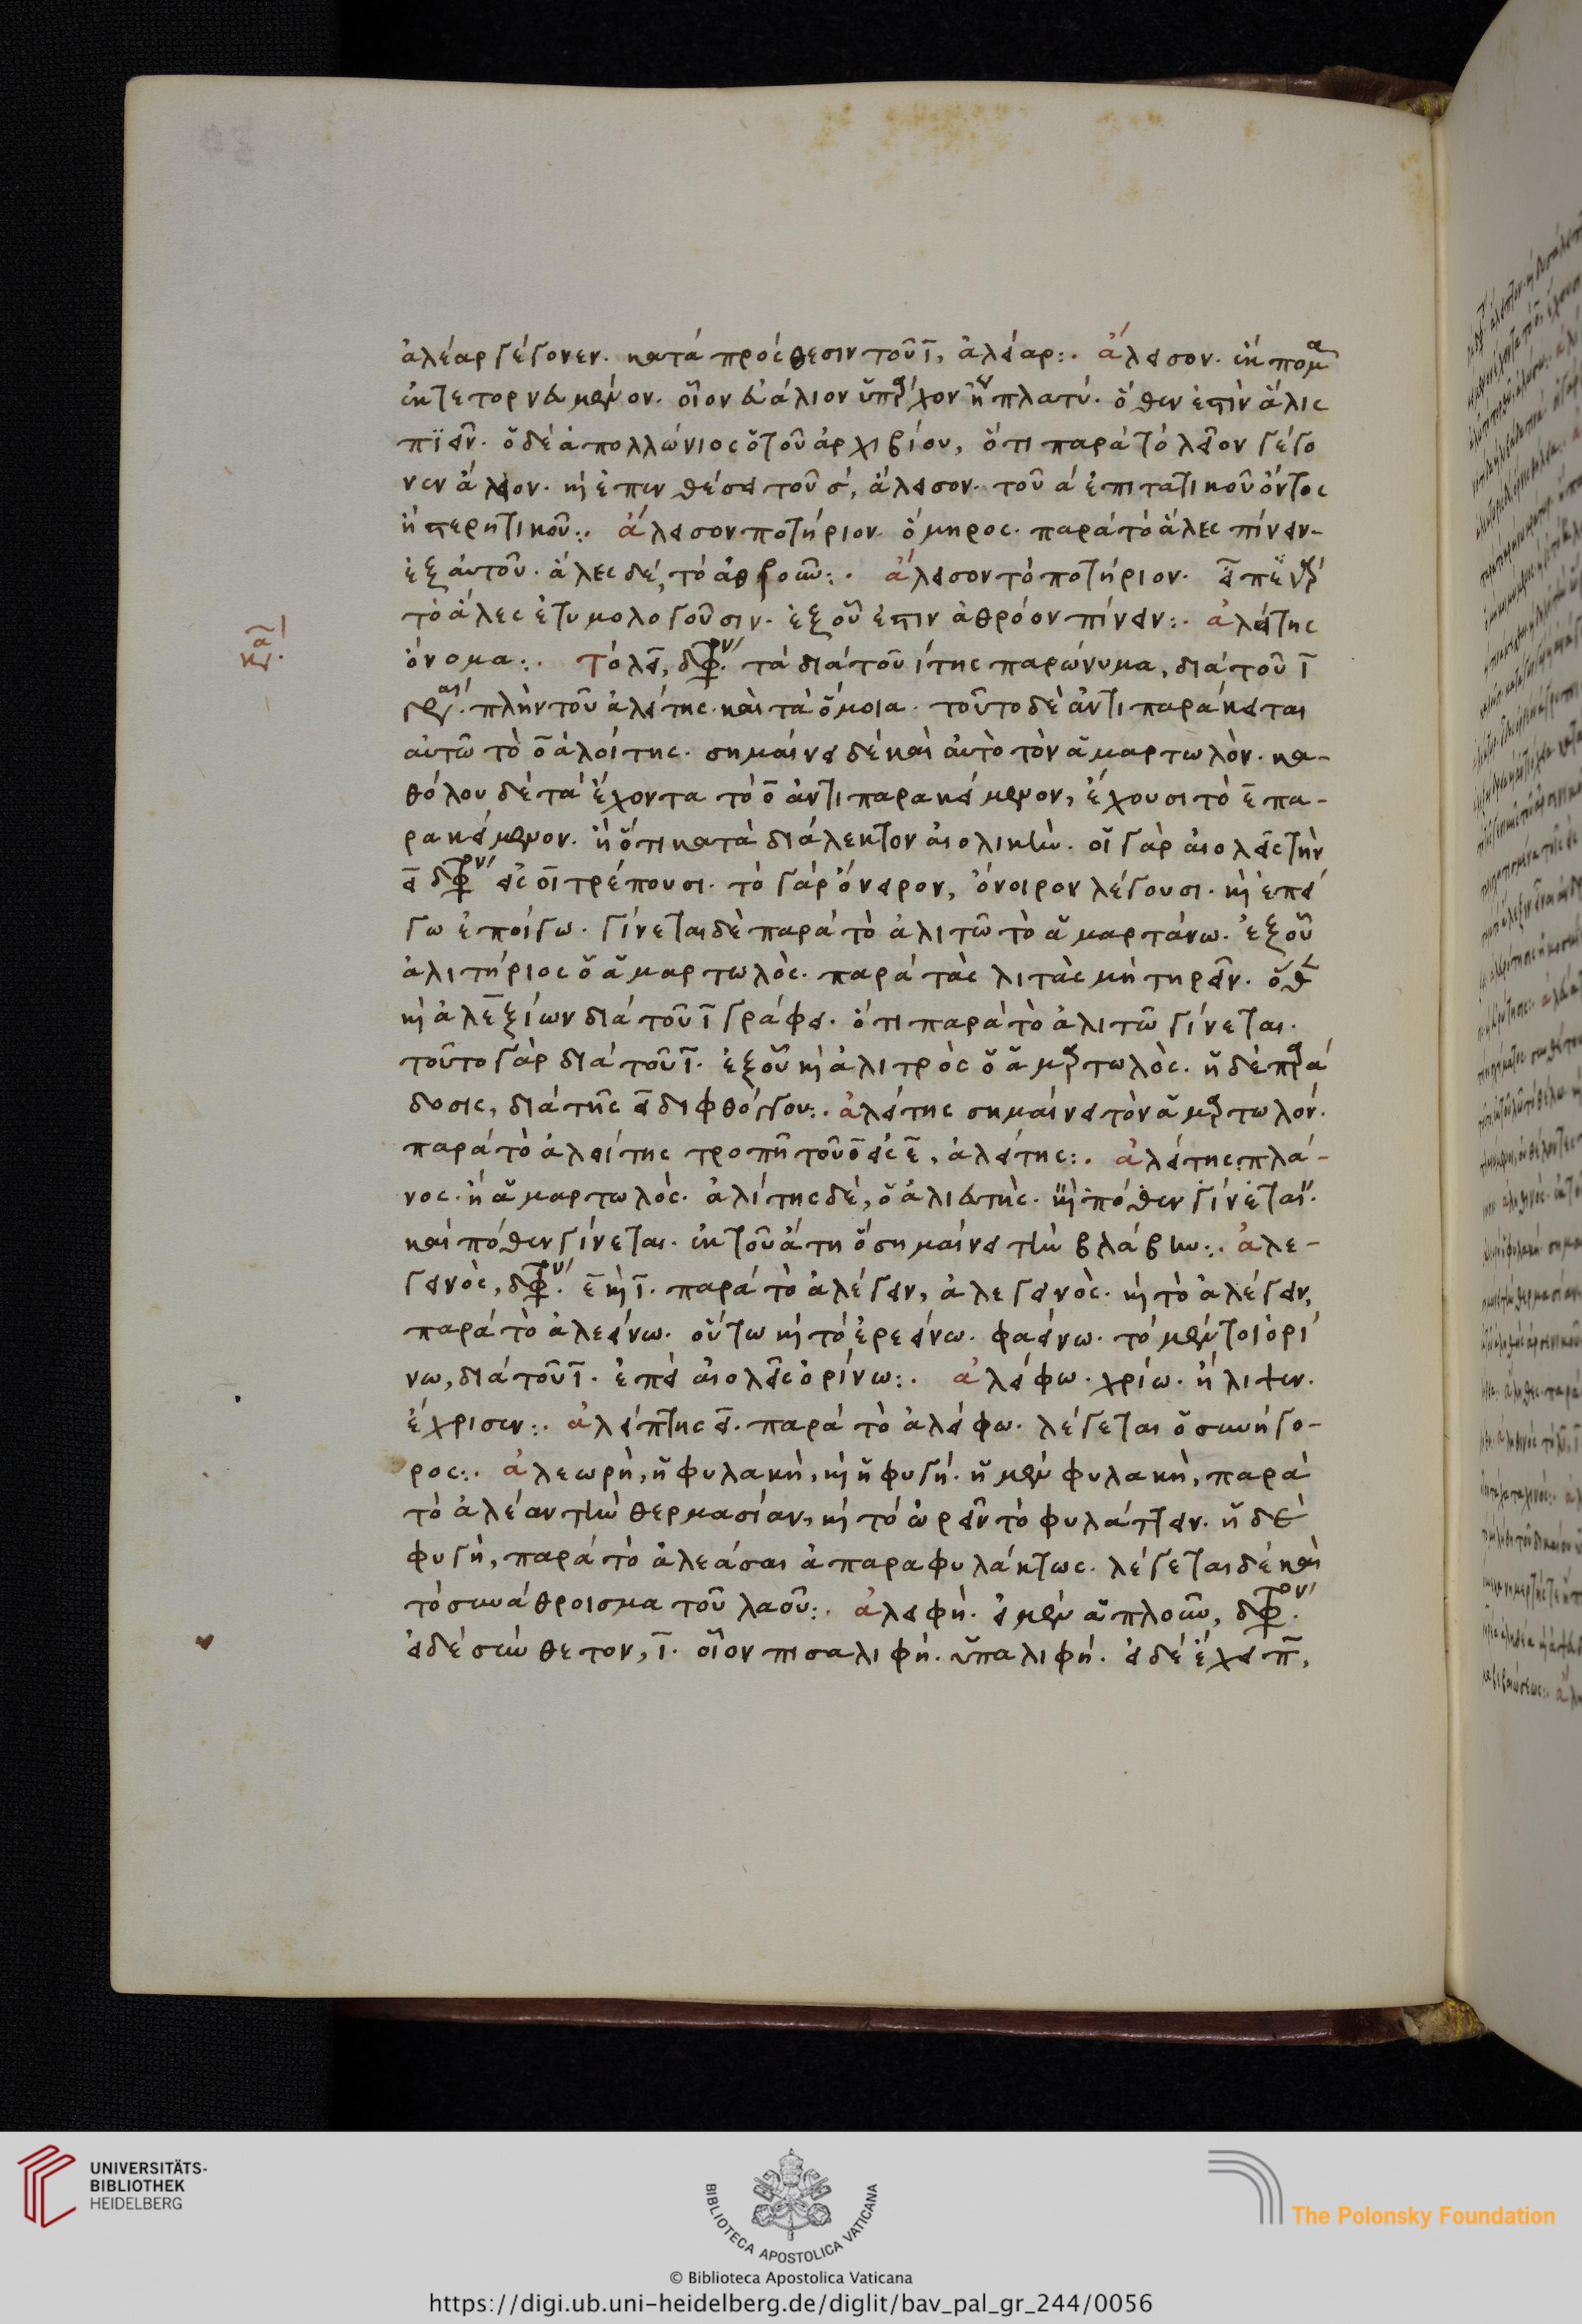 ἀλέαρ γέγονεν. κατὰ πρόσθεσιν τοῦ ῑ, ἀλείαρ:. ἄλεισον. ἐκπομα
ἐκ τετορνευμένον. οἷον εὐάλιον ὑπάρχον ἢ πλατύ. ὅθεν ἐστὶν ἅλις
πϊεῖν. ὁ δὲ ἀπολλώνιος ὁ τοῦ ἀρχιβίου, ὅτι παρὰ τὸ λεῖον γέγο
νεν ἄλειον. κὶ ἐπενθέσει τοῦ σ, ἄλεισον. τοῦ α ἐπιτατικοῦ ὄντος
ἢ στερητικοῦ:. ἄλεισον ποτήριον. ὅμηρος. παρὰ τὸ ἅλες πίνειν-
ἐξ αὐτοῦ. ἅλες δέ, τὸ ἀθροῶν:. ἄλεισον τὸ ποτήριον.
τὸ ἅλες ἐτυμολογοῦσιν. ἐξ οὗ ἐστιν ἀθρόον πίνειν:. ἀλείτης
κα
ὄνομα:. τὸ λει, δφ. τὰ διὰ τοῦ ίτης παρώνυμα, διὰ τοῦ ῑ
γρ. πλὴν τοῦ ἀλείτης. καὶ τὰ ὅμοια. τοῦτο δὲ ἀντιπαράκειται
αὐτῶ τὸ ο ἀλοίτης. σημαίνει δὲ καὶ αὐτὸ τὸν ἁμαρτωλὸν. κα-
θόλου δὲ τὰ ἔχοντα τὸ ο ἀντιπαρακείμενον, ἔχουσι τὸ ε πα-
ρακείμενον. ἢ ὅτι κατὰ διάλεκτον αἰολικὴν. οἱ γὰρ αἰολεῖς τὴν
ει δφ εἰς οι τρέπουσι. τὸ γὰρ ὄνειρον, ὄνοιρον λέγουσι. κὶ ἐπεί
γω ἐποίγω. γίνεται δὲ παρὰ τὸ ἀλιτῶ τὸ ἁμαρτάνω. ἐξ οὗ
ἀλιτήριος ὁ ἁμαρτωλὸς. παρὰ τὰς λιτὰς μὴ τηρεῖν. ὅθ
κὶ ἀλεξίων διὰ τοῦ ῑ γράφει. ὅτι παρὰ τὸ ἀλιτῶ γίνεται.
τοῦτο γὰρ διὰ τοῦ ῑ. ἐξ οὗ κὶ ἀλιτρὸς ὁ ἁμαρτωλὸς. ἡ δὲ παρά
δοσις, διὰ τῆς ει διφθόγγου:. ἀλείτης σημαίνει τὸν ἁμαρτωλόν.
παρὰ τὸ ἀλοίτης τροπῆ τοῦ ο εἰς ε, ἀλείτης:. ἀλείτης πλά-
νος. ἢ ἁμαρτωλὸς. ἀλίτης δὲ, ὁ ἁλιευτὴς. κὶ πόθεν γίνεται.
καὶ πόθεν γίνεται. ἐκ τοῦ ἄτη ὃ σημαίνει τὴν βλάβην:. ἀλε-
γεινὸς, δφ. ε κὶ ῑ. παρὰ τὸ ἀλέγειν, ἀλεγεινὸς. κὶ τὸ ἀλέγειν,
παρὰ τὸ ἀλεείνω. οὕτω κὶ τὸ ἐρεείνω. φαείνω. τὸ μέντοι ὀρί
νω, διὰ τοῦ ῑ. ἐπεὶ αἰολεῖς ὀρίνω:. ἀλείφω. χρίω. ἤλιψεν.
ἔχρισεν:. ἀλείπτης ει. παρὰ τὸ ἀλείφω. λέγεται ὁ συνήγο-
ρος:. ἀλεωρὴ, ἡ φυλακὴ, κὶ ἡ φυγή. ἡ μὲν φυλακὴ, παρὰ
τὸ ἀλέαν τὴν θερμασίαν, κὶ τὸ ὠρεῖν τὸ φυλάττειν. ἡ δὲ
φυγὴ, παρὰ τὸ ἀλεάσαι ἀπαραφυλάκτως. λέγεται δὲ καὶ
τὸ συνάθροισμα τοῦ λαοῦ:. ἀλειφὴ. εἰ μὲν ἁπλοῦν, δφ.
εἰ δὲ σύνθετον, ῑ. οἷον πισαλιφή. ὑπαλιφή. εἰ δὲ ἔχει π,
UNIVERSITÄTS-
BIBLIOTHEK
HEIDELBERG
BIBLIOTECA APOSTOLICA VATICANA
The Polonsky Foundation
© Biblioteca Apostolica Vaticana
https://digi.ub.uni-heidelberg.de/diglit/bav_pal_gr_244/0056